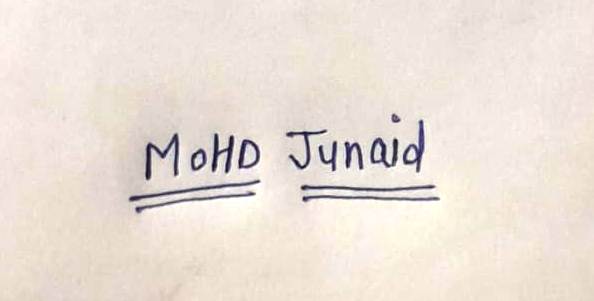 MOHD Junaid